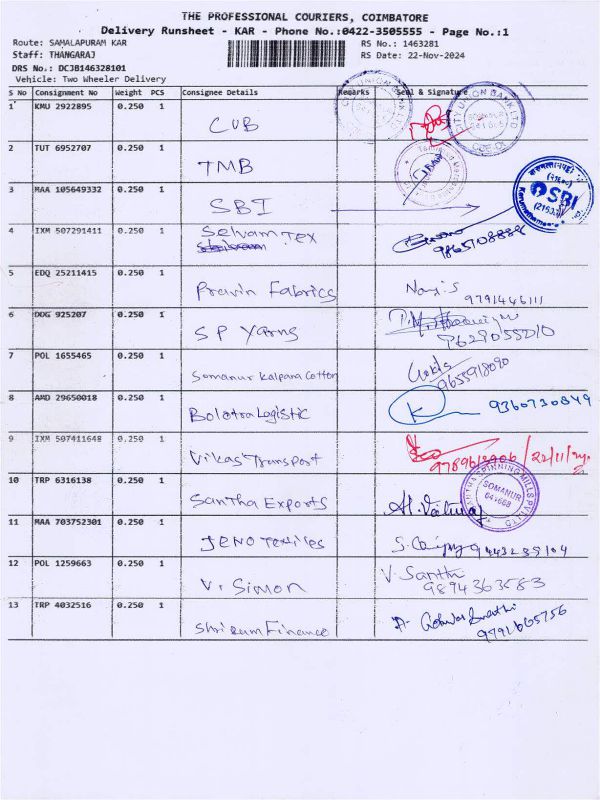 THE PROFESSIONAL COURIERS, COIMBATORE
Delivery Runsheet - KAR - Phone No.:0422-3505555 - Page No.:1
Route: SAMALAPURAM KAR RS No.: 1463281
Staff: THANGARAJ RS Date: 22-Nov-2024
DRS No.: DCJB146328101
Vehicle: Two Wheeler Delivery
S No Consignment No Weight PCS Consignee Details Remarks Seal & Signature
1 KMU 2922895 0.250 1 CUB CITY UNION BANK LTD
2 TUT 6952707 0.250 1 TMB
3 MAA 105649332 0.250 1 SBI SBI
4 IXM 507291411 0.250 1 Selvam Tex 9865108888
5 EDQ 25211415 0.250 1 Pravin Fabrics 9791446111
6 DDG 925207 0.250 1 SP Yarns 9629055010
7 POL 1655465 0.250 1 Somanur Kalpana Cotton 9655918090
8 AMD 29650018 0.250 1 Bolotra Logistic K 9360730849
9 IXM 507411648 0.250 1 Vikas Transport 22/11/24
10 TRP 6316138 0.250 1 Santha Exports SPINNING MILLS PVT LTD SOMANUR 641668
11 MAA 703752301 0.250 1 JENO Textiles 9443235104
12 POL 1259663 0.250 1 V. Simon V. Santhi 9894363583
13 TRP 4032516 0.250 1 Shriram Finance 9791605756